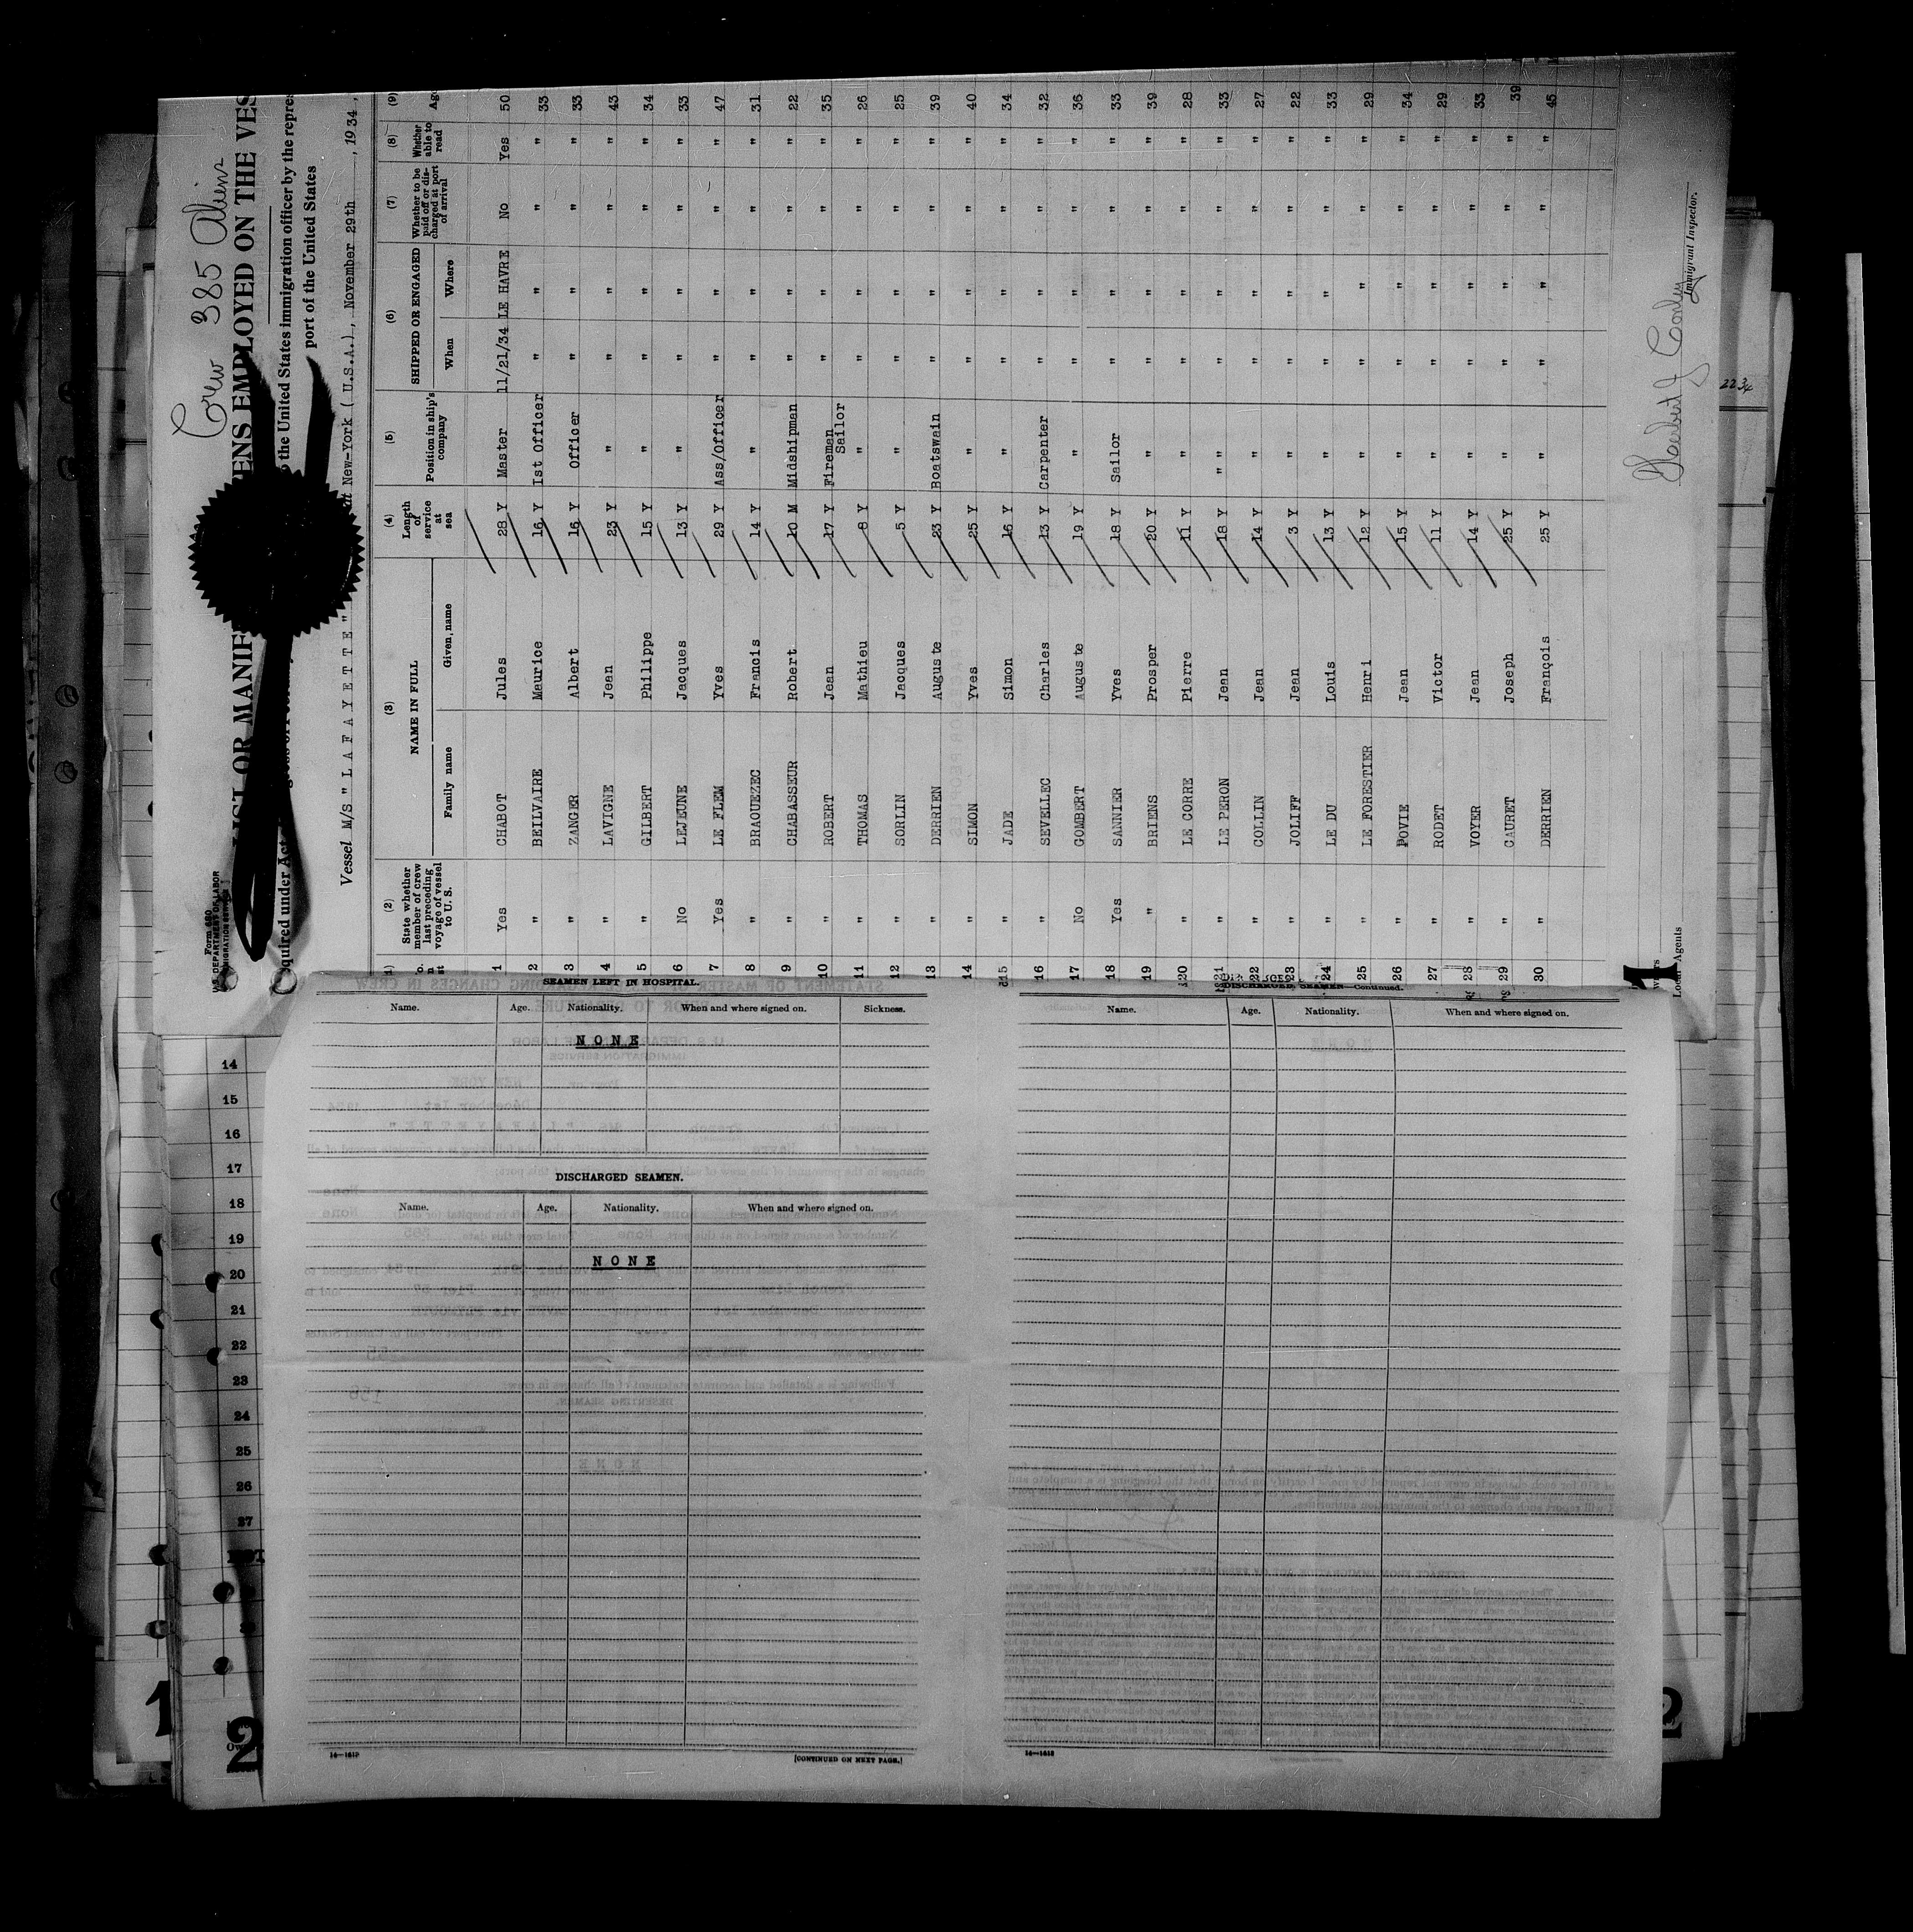 Crew 385 Aliens
Form 680
U.S. DEPARTMENT OF LABOR
IMMIGRATION SERVICE
LIST OR MANIF ENS EMPLOYED ON THE VES
quired under Act the United States immigration officer by the repres
port of the United States
Vessel M/S " L A F A Y E T T E " at New-York (U.S.A.), November 29th , 1934,
(2) (3) (4) (5) (6) (7) (8) (9)
State whether member of crew last preceding voyage of vessel to U. S. NAME IN FULL Family name Given name Length of service at sea Position in ship's company SHIPPED OR ENGAGED When Where Whether to be paid off or discharged at port of arrival Whether able to read Age
1 Yes CHABOT Jules 28 Y Master 11/21/34 LE HAVRE No Yes 50
2 " BEILVAIRE Maurice 16 Y 1st Officer " " " " 33
3 " ZANGER Albert 16 Y Officer " " " " 33
4 " LAVIGNE Jean 23 Y " " " " " 43
5 " GILBERT Philippe 15 Y " " " " " 34
6 No LEJEUNE Jacques 13 Y " " " " " 33
7 Yes LE FLEM Yves 29 Y Ass/Officer " " " " 47
8 " BRAOUEZEC Francis 14 Y " " " " " 31
9 " CHABASSEUR Robert 10 M Midshipman " " " " 22
10 " ROBERT Jean 17 Y Fireman Sailor " " " " 35
11 " THOMAS Mathieu 8 Y " " " " " 26
12 " SORLIN Jacques 5 Y " " " " " 25
13 " DERRIEN Auguste 23 Y Boatswain " " " " 39
14 " SIMON Yves 25 Y " " " " " 40
15 " JADE Simon 16 Y " " " " " 34
16 " SEVELLEC Charles 13 Y Carpenter " " " " 32
17 No GOMBERT Auguste 19 Y " " " " " 36
18 Yes SANNIER Yves 18 Y Sailor " " " " 33
19 " BRIENS Prosper 20 Y " " " " " 39
20 " LE CORRE Pierre 11 Y " " " " " 28
21 " LE PERON Jean 18 Y " " " " " " 33
22 " COLLIN Jean 14 Y " " " " " 27
23 " JOLIFF Jean 3 Y " " " " " 22
24 " LE DU Louis 13 Y " " " " " 33
25 " LE FORESTIER Henri 12 Y " " " " " 29
26 " POVIE Jean 15 Y " " " " " 34
27 " RODET Victor 11 Y " " " " " 29
28 " VOYER Jean 14 Y " " " " " 33
29 " CAURET Joseph 25 Y " " " " " 39
30 " DERRIEN François 25 Y " " " " " 45
Local Agents
Immigrant Inspector.
1
2234
SEAMEN LEFT IN HOSPITAL.
Name. Age. Nationality. When and where signed on. Sickness.
N O N E
DISCHARGED SEAMEN.
Name. Age. Nationality. When and where signed on.
N O N E
[CONTINUED ON NEXT PAGE.]
DISCHARGED SEAMEN—Continued.
Name. Age. Nationality. When and where signed on.
14
15
16
17
18
19
20
21
22
23
24
25
26
27
1
2
2